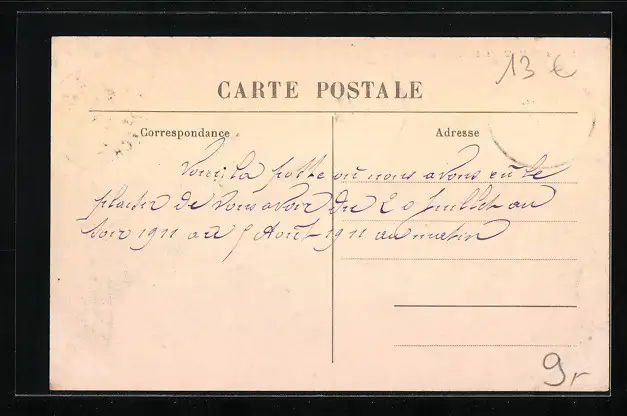 13 €
CARTE POSTALE
Correspondance
Adresse
Voici la poste où nous avons eû le
plaisir de vous avoir du 20 Juillet au
soir 1911 au 5 Août 1911 au matin
9r